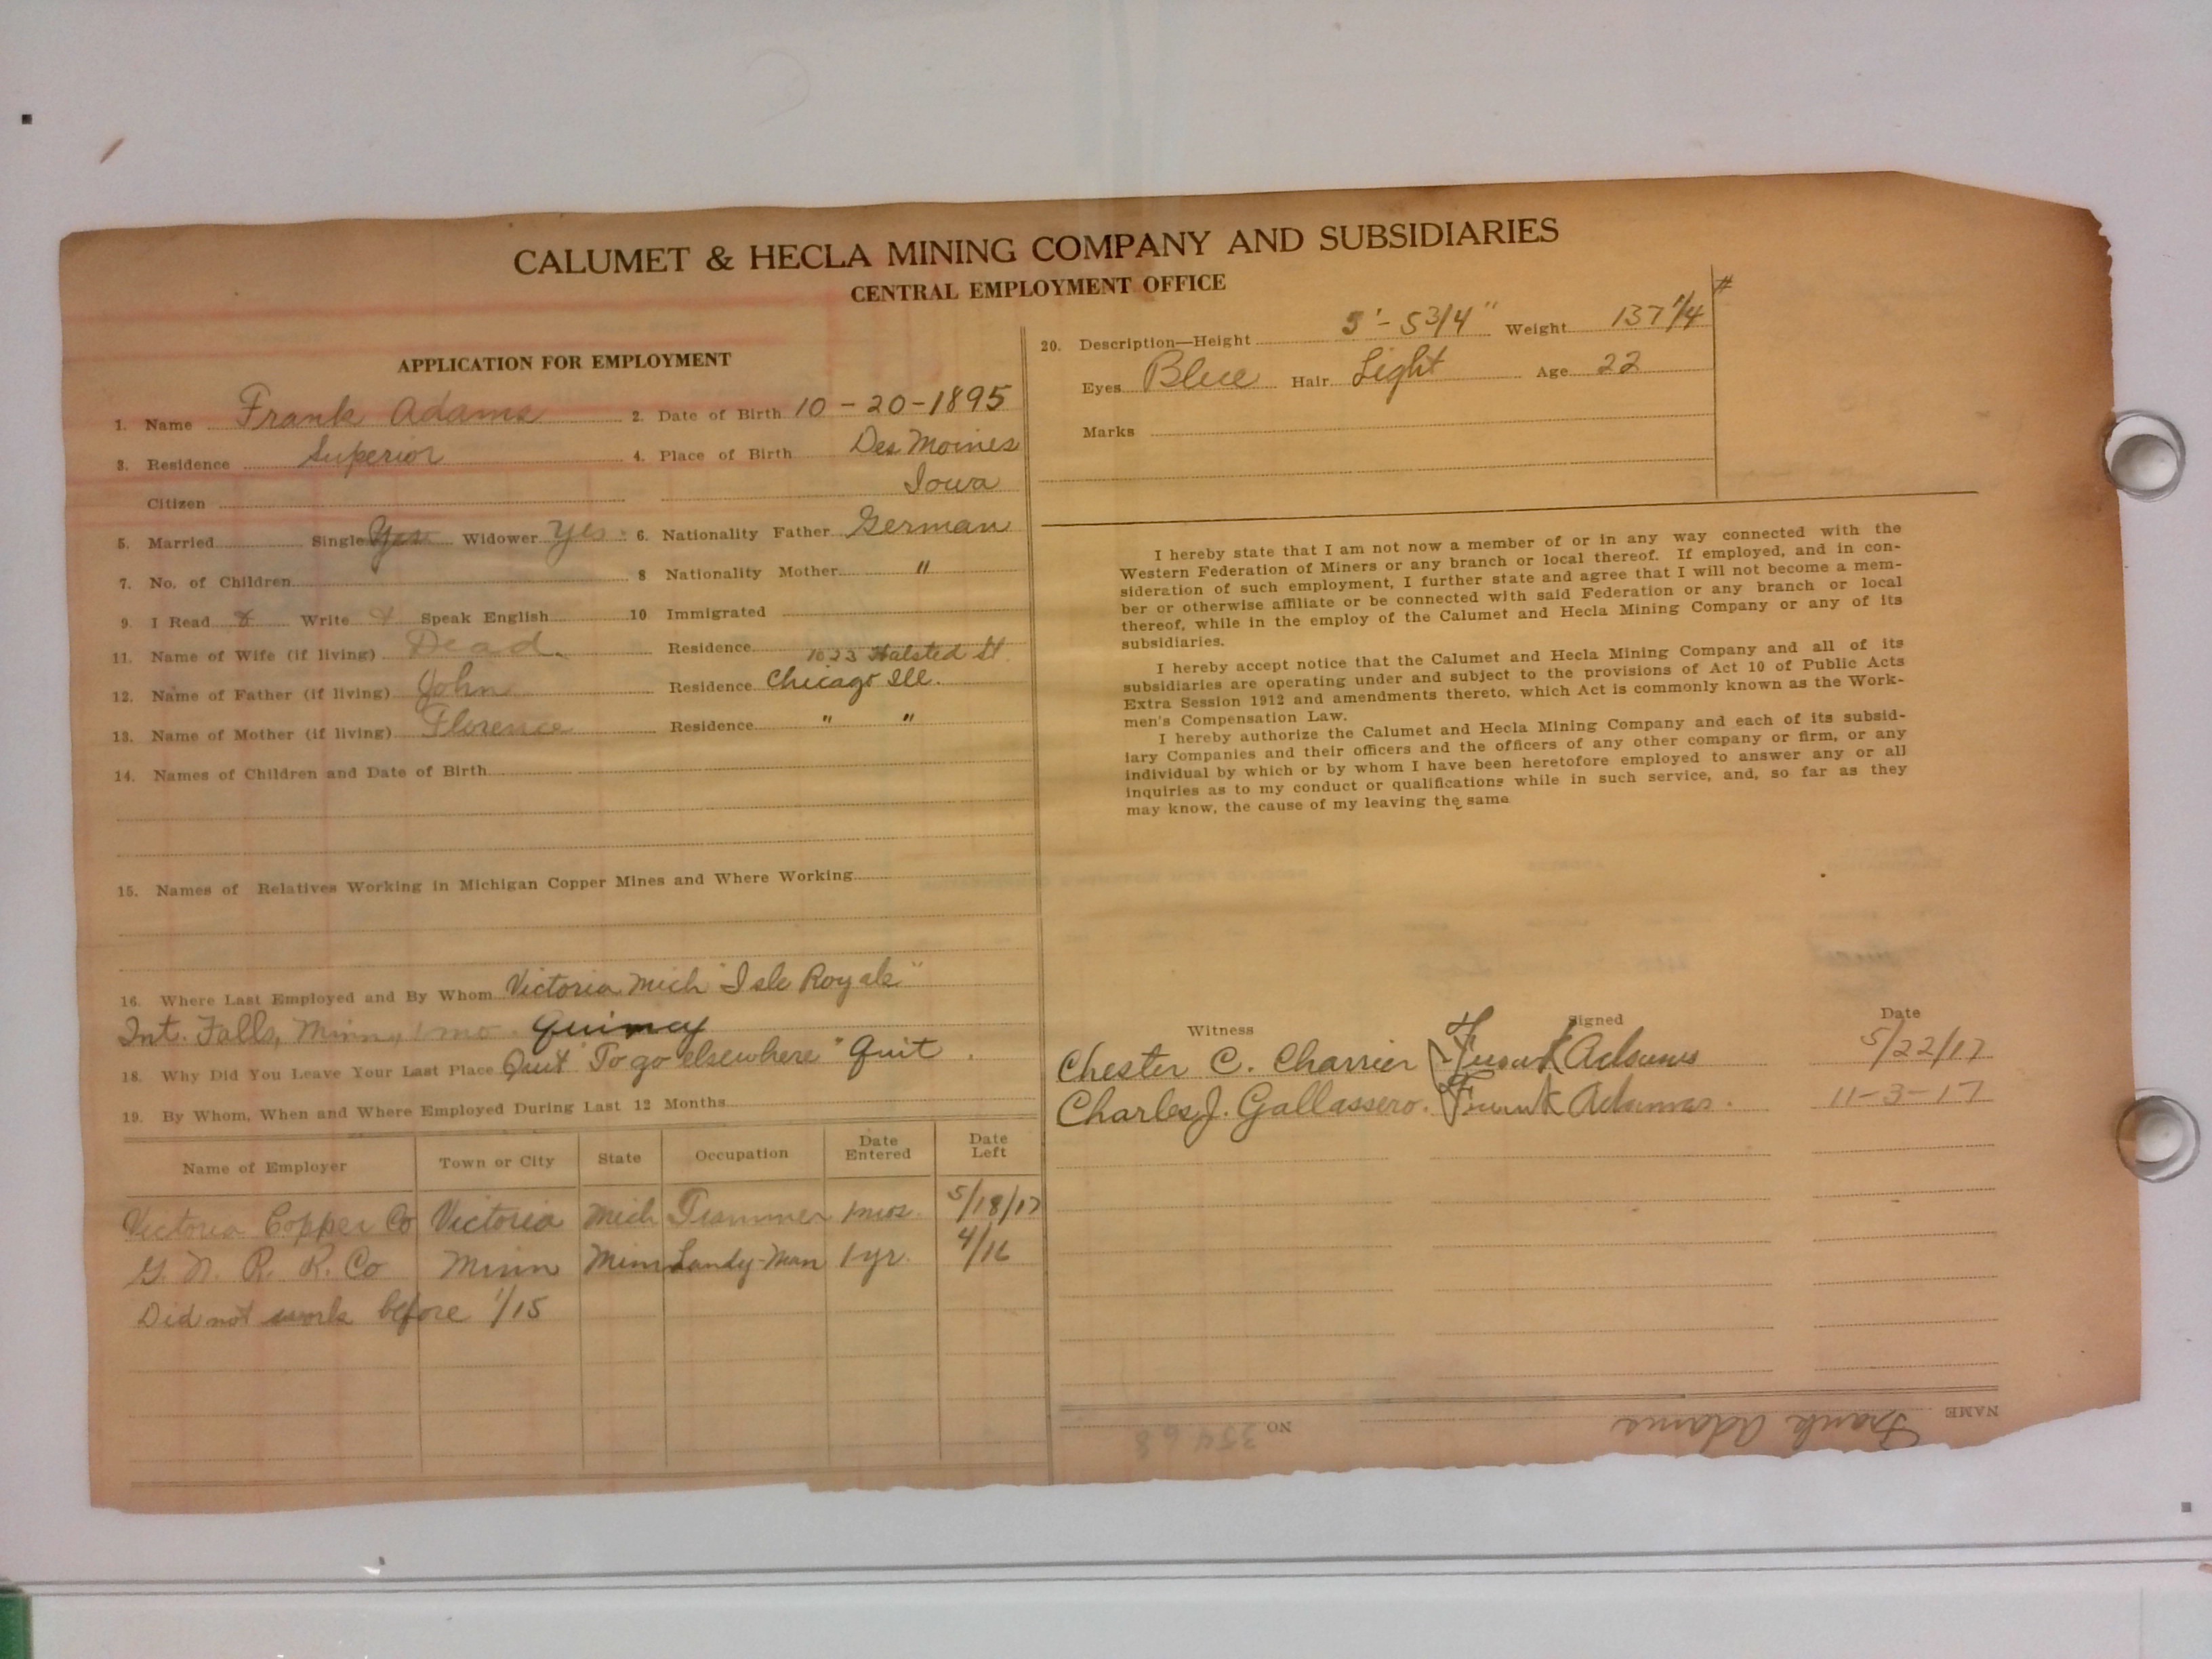 CALUMET & HECLA MINING COMPANY AND SUBSIDIARIES
CENTRAL EMPLOYMENT OFFICE
APPLICATION FOR EMPLOYMENT
1. Name Frank Adams 2. Date of Birth 10-20-1895
3. Residence Superior 4. Place of Birth Des Moines
Citizen Iowa
5. Married Single Yes Widower Yes 6. Nationality Father German
7. No. of Children 8 Nationality Mother "
9. I Read Write Speak English 10 Immigrated
11. Name of Wife (if living) Dead. Residence 1023 Halsted St.
12. Name of Father (if living) John Residence Chicago Ill.
13. Name of Mother (if living) Florence Residence " "
14. Names of Children and Date of Birth
15. Names of Relatives Working in Michigan Copper Mines and Where Working
16. Where Last Employed and By Whom Victoria Mich "Isle Royale"
Int. Falls, Minn, 1 mo. Quincy
18. Why Did You Leave Your Last Place Quit "To go elsewhere" Quit.
19. By Whom, When and Where Employed During Last 12 Months
Name of Employer Town or City State Occupation Date Entered Date Left
Victoria Copper Co Victoria Mich Trammer 1 mos. 5/18/17
G. N. R. R. Co Minn Minn 1 yr. 4/16
Did not work before 1/15
20. Description—Height 5'-5 3/4" Weight 137 1/4
#
Eyes Blue Hair Light Age 22
Marks
I hereby state that I am not now a member of or in any way connected with the
Western Federation of Miners or any branch or local thereof. If employed, and in con-
sideration of such employment, I further state and agree that I will not become a mem-
ber or otherwise affiliate or be connected with said Federation or any branch or local
thereof, while in the employ of the Calumet and Hecla Mining Company or any of its
subsidiaries.
I hereby accept notice that the Calumet and Hecla Mining Company and all of its
subsidiaries are operating under and subject to the provisions of Act 10 of Public Acts
Extra Session 1912 and amendments thereto, which Act is commonly known as the Work-
men's Compensation Law.
I hereby authorize the Calumet and Hecla Mining Company and each of its subsid-
iary Companies and their officers and the officers of any other company or firm, or any
individual by which or by whom I have been heretofore employed to answer any or all
inquiries as to my conduct or qualifications while in such service, and, so far as they
may know, the cause of my leaving the same
Witness Signed Date
Chester C. Charrier Frank Adams 5/22/17
Charles J. Gallassero. Frank Adams. 11-3-17
NAME Frank Adams NO.